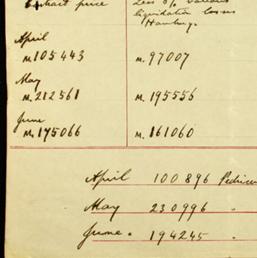 Contract price Less 8% various
liquidation losses
Hamburg.
April
M. 105443 M. 97007
May
M. 212561 M. 195556
June
M. 175066 M. 161060
April 100896
May 230996 "
June " 194245 "